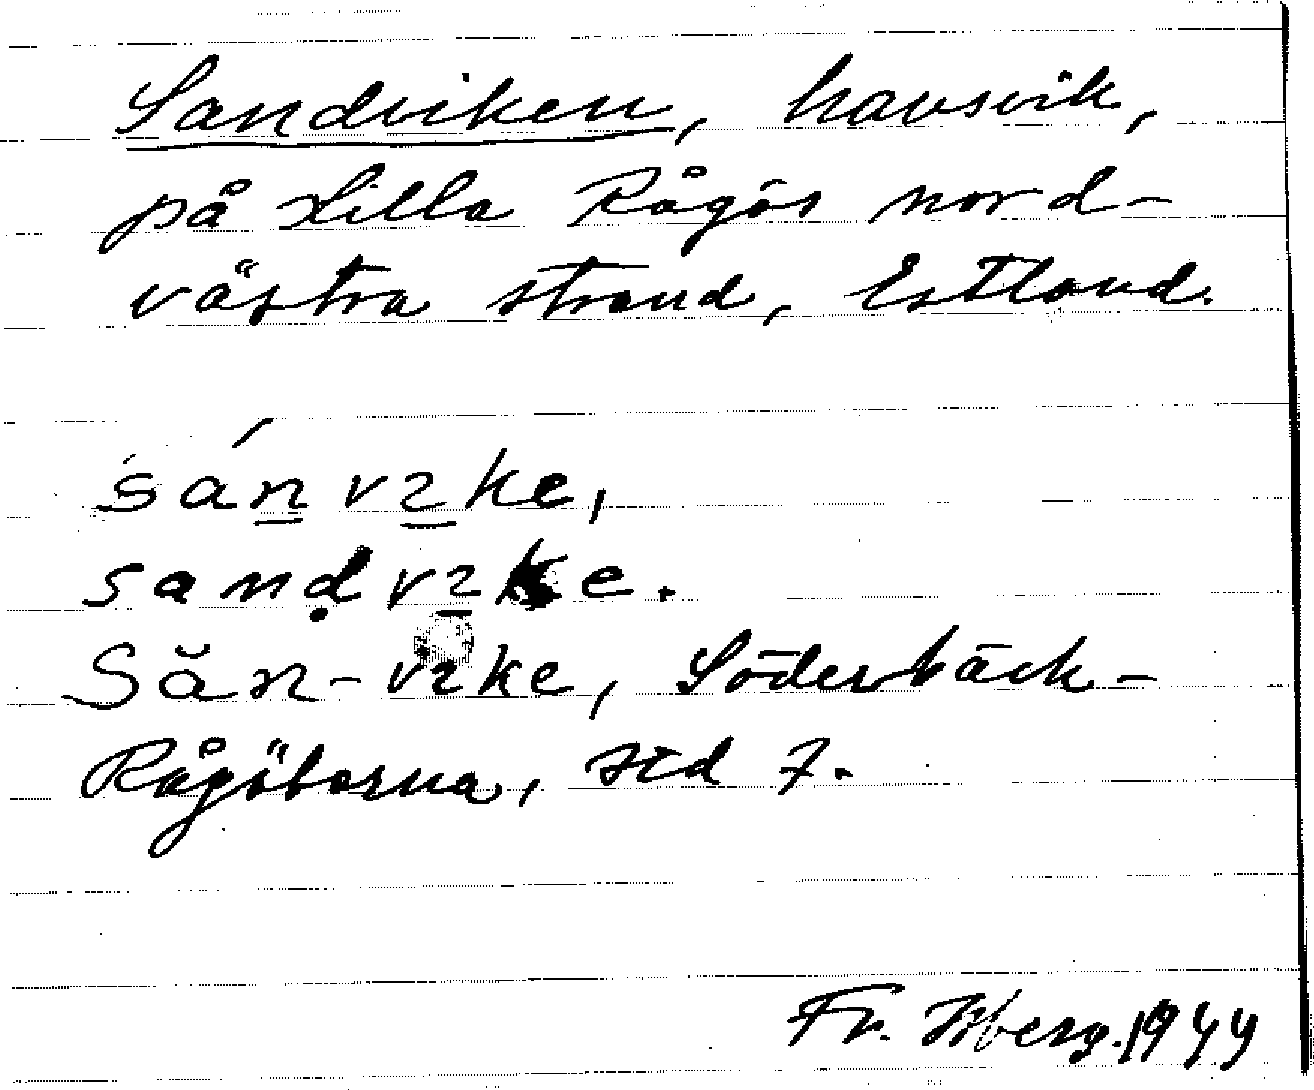 Sandviken, havsvik,
på Lilla Rågös nord-
västra strand, Estland.
sán̲vɿ̲ke,
sanḍvɿ̲ke.
Săn-vɿke, Söderbäck-
Rågöborna, sid 7.
Fr. Isberg. 1944